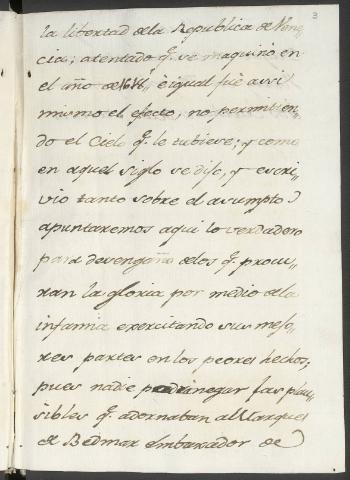 3
la libertad dela Republica de Vene
cia; atentado q.e se maquinó en
el año de 1618; è igual fué assi
mismo el efecto, no permitien,,
do el Cielo q.e le tubiese; y como
en aquel siglo se dijo, y escri,,
vio tanto sobre el asumpto
apuntaremos aqui lo verdadero
para desengaño delos q.e procu,,
ran la gloria por medio dela
infamia exercitando sus mejo,,
res partes en los peores hechos,
pues nadie podrá negar las plau,,
sibles q.e adornaban al Marques
de Bedmar Embaxador de